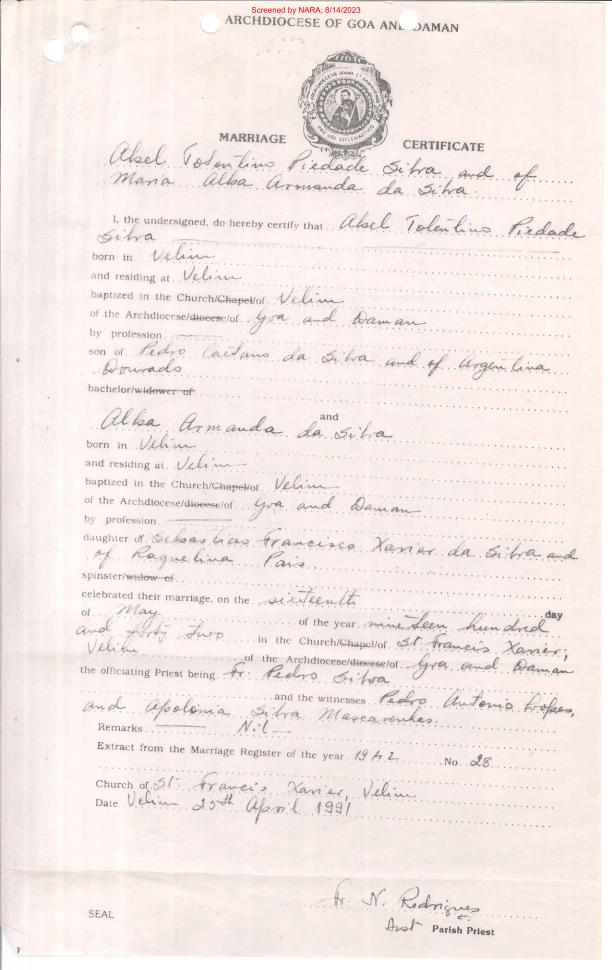 Screened by NARA, 8/14/2023
ARCHDIOCESE OF GOA AND DAMAN
MARRIAGE CERTIFICATE
Abel Tolentino Piedade Silva and of
Maria Alba Armanda da Silva
I, the undersigned, do hereby certify that Abel Tolentino Piedade
Silva
born in Velim
and residing at Velim
baptized in the Church/Chapel/of Velim
of the Archdiocese/diocese/of Goa and Daman
by profession
son of Pedro Caetano da Silva and of Argentina
Dourado
bachelor/widower of
and
Alba Armanda da Silva
born in Velim
and residing at Velim
baptized in the Church/Chapel/of Velim
of the Archdiocese/diocese/of Goa and Daman
by profession
daughter of Sebastiao Francisco Xavier da Silva and
of Raquelina Pais
spinster/widow of
celebrated their marriage, on the sixteenth day
of May of the year nineteen hundred
and forty two in the Church/Chapel/of St. Francis Xavier,
Velim of the Archdiocese/diocese/of Goa and Daman
the officiating Priest being Fr. Pedro Silva
and the witnesses Pedro Antonio Lopes,
and Apolonia Silva Mascarenhas.
Remarks Nil
Extract from the Marriage Register of the year 1942 No 28
Church of St. Francis Xavier, Velim
Date Velim 25th April 1991
Fr. N. Rodrigues
SEAL
Asst Parish Priest